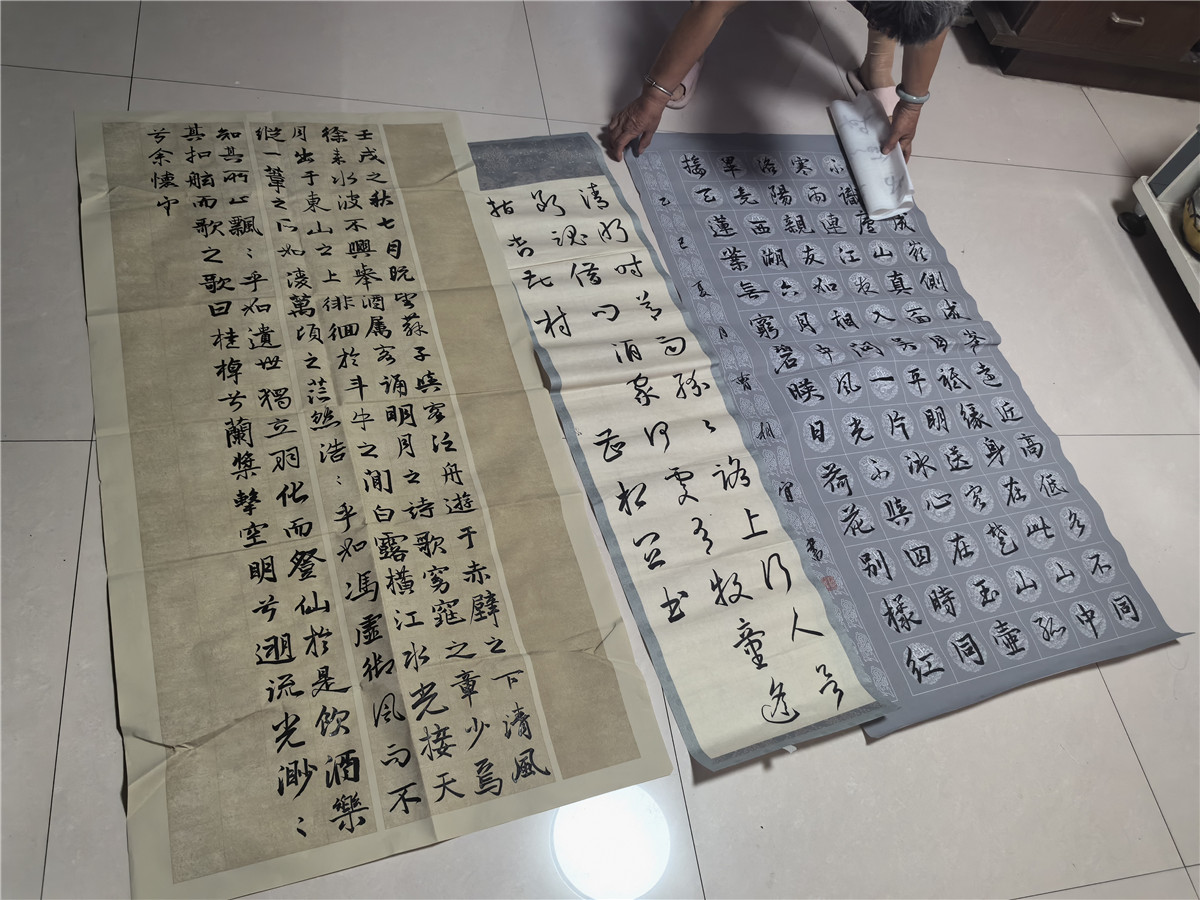 壬戌之秋七月既望蘇子與客泛舟遊于赤壁之下清風
徐来水波不興舉酒属客诵明月之诗歌窈窕之章少焉
月出于東山之上徘徊於斗牛之間白露橫江水光接天
縱一葦之所如凌萬頃之茫然浩〻乎如馮虛御風而不
知其所止飄〻乎如遺世獨立羽化而登仙於是飲酒樂
其扣舷而歌之歌曰桂棹兮蘭槳擊空明兮遡流光渺〻
兮余懷
清明时节雨纷〻路上行人欲
断魂借问酒家何处有牧童遥
指杏花村
曹相宜书
成嶺側成峯遠近高低各不同
不識廬山真面目祗緣身在此山中
寒雨連江夜入吳平明送客楚山孤
洛陽親友如相问一片冰心在玉壺
畢竟西湖六月中風光不與四時同
接天蓮葉無窮碧映日荷花別樣紅
乙巳夏月曹相宜書